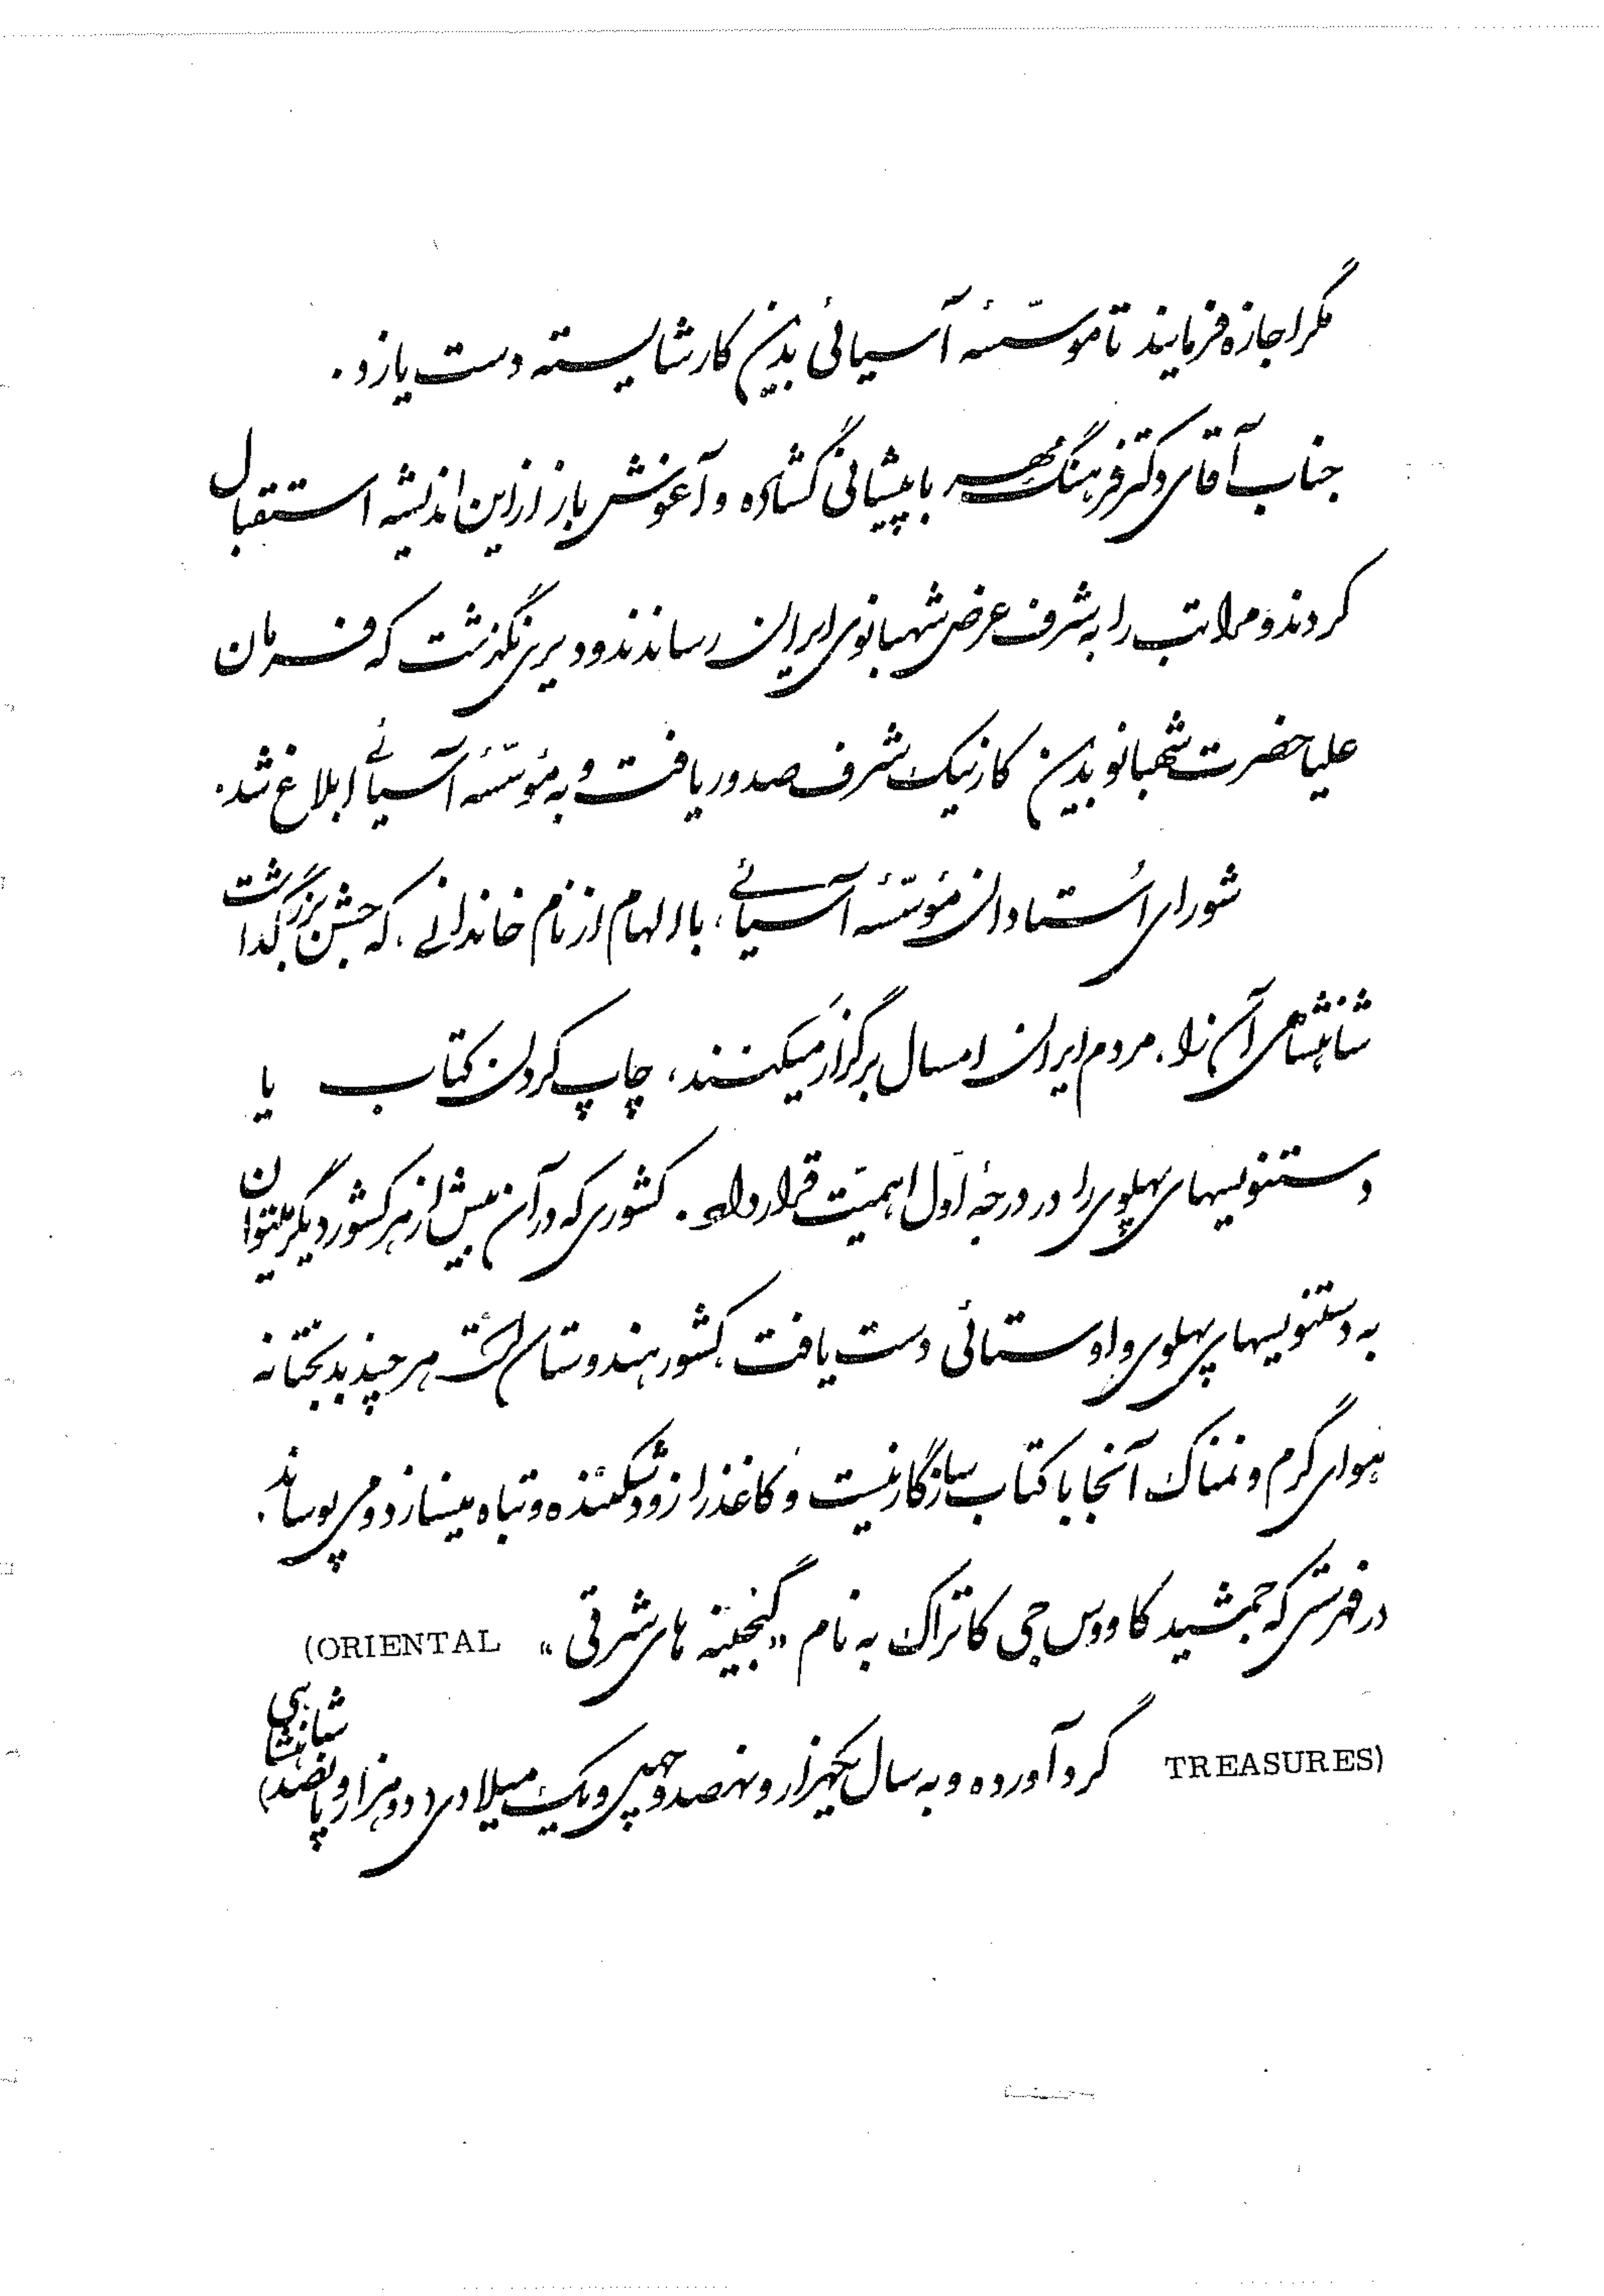 مگر اجازه فرمایند تا موسّسهٔ آسیائی بدین کار شایسته دست یازد.
جناب آقای دکتر فرهنگ مهر با پیشانی گشاده و آغوش باز از این اندیشه استقبال
کردند و مراتب را به شرف عرض شهبانوی ایران رساندند و دیری نگذشت که فرمان
علیاحضرت شهبانو بدین کار نیک شرف صدور یافت و به مؤسّسهٔ آسیائی ابلاغ شد.
شورای استادان مؤسّسهٔ آسیائی، با الهام از نام خاندانی، که جشن بزرگداشت
شاهنشاهی آن را، مردم ایران امسال برگزار میکنند، چاپ کردن کتاب یا
دستنویسهای پهلوی را در درجهٔ اوّل اهمیّت قرار داد. کشوری که در آن بیش از هر کشور دیگر میتوان
به دستنویسهای پهلوی و اوستائی دست یافت، کشور هندوستان است هر چند بدبختانه
هوای گرم و نمناک آنجا با کتاب سازگار نیست و کاغذ را زود شکننده و تباه میسازد و می پوساند.
در فهرستی که جمشید کاووس جی کاتراک به نام «گنجینه های شرقی» (ORIENTAL
TREASURES) گرد آورده و به سال یکهزار و نهصد و چهل و یک میلادی (دو هزار و پانصد شاهنشاهی)